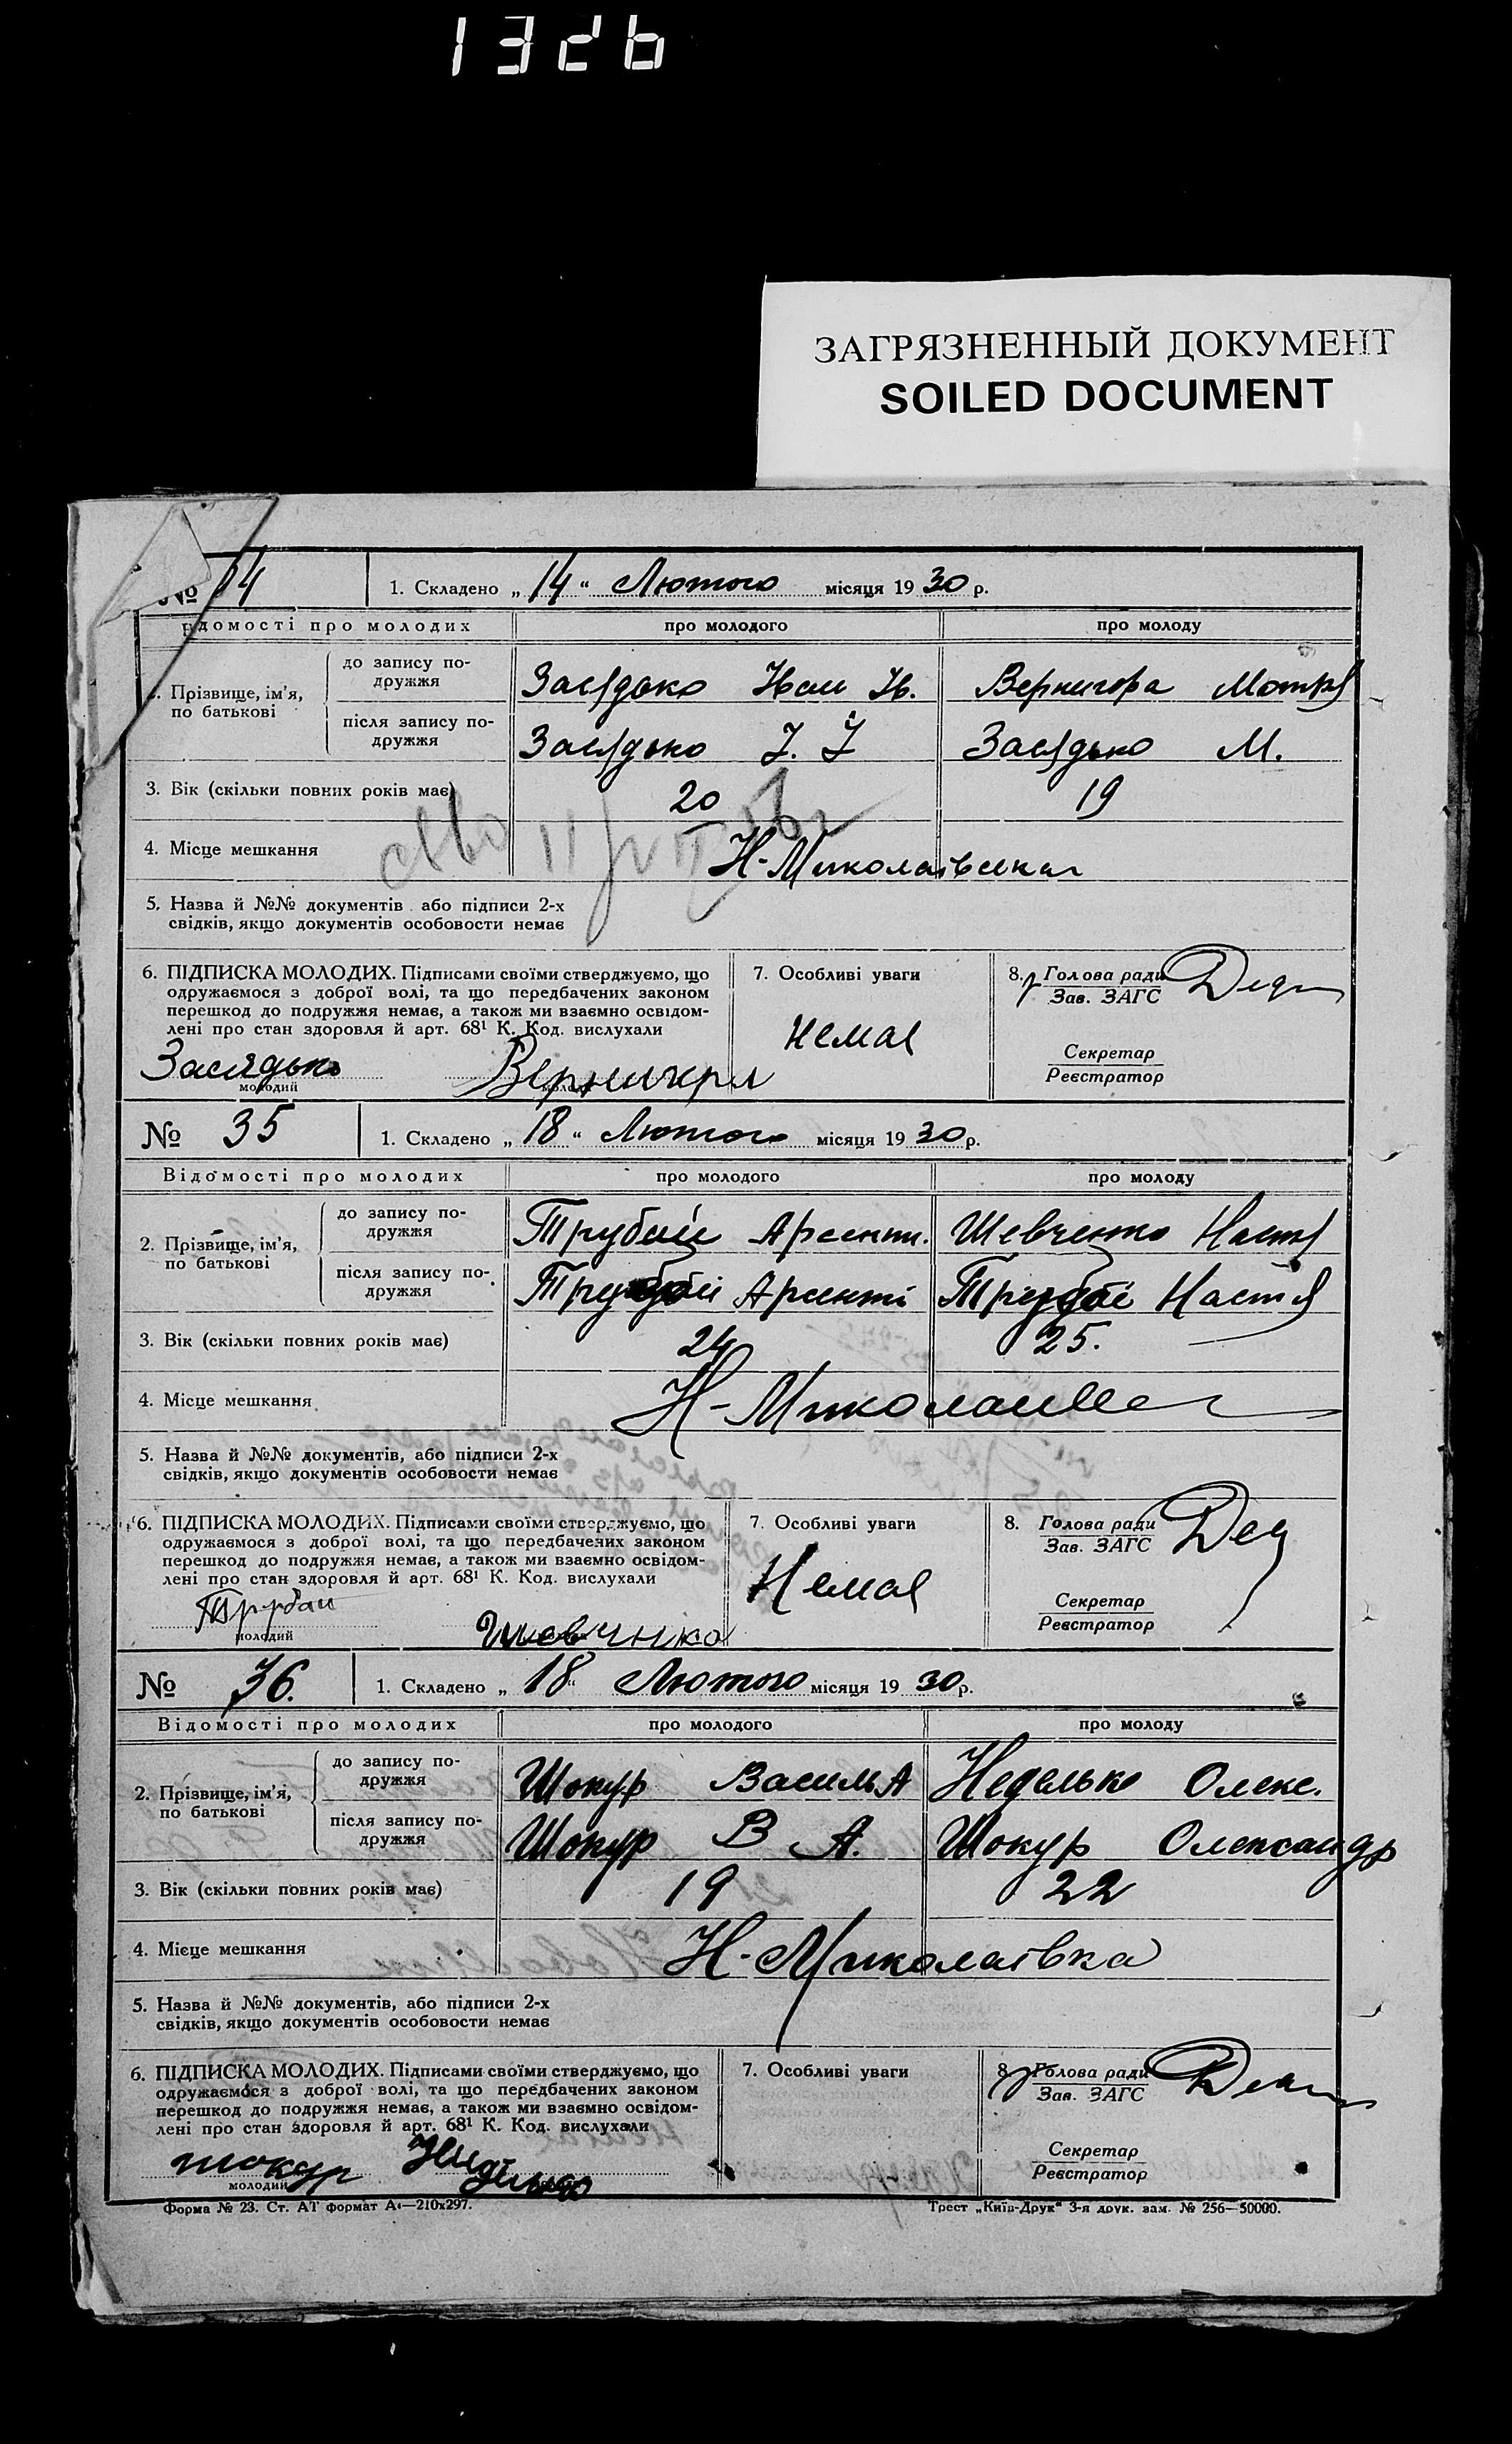 1326
ЗАГРЯЗНЕННЫЙ ДОКУМЕНТ
SOILED DOCUMENT
№ 34 1. Складено „14“ Лютого місяця 1930 р.
Відомості про молодих про молодого про молоду
2. Прізвище, ім’я, по батькові
до запису подружжя Засядько Іван Ів. Вернигора Мотря
після запису подружжя Засядько І. І Засядько М.
3. Вік (скільки повних років має) 20 19
4. Місце мешкання Н-Миколаївська
5. Назва й №№ документів або підписи 2-х
свідків, якщо документів особовости немає
6. ПІДПИСКА МОЛОДИХ. Підписами своїми стверджуємо, що 7. Особливі уваги 8. Голова ради
одружаємося з доброї волі, та що передбачених законом Зав. ЗАГС
перешкод до подружжя немає, а також ми взаємно освідом-
лені про стан здоров’я й арт. 68¹ К. Код. вислухали немає
Секретар
Засядько Вернигора Реєстратор
молодий
№ 35 1. Складено „18“ Лютого місяця 1930 р.
Відомості про молодих про молодого про молоду
2. Прізвище, ім’я, по батькові
до запису подружжя Трубай Арсенти. Шевченко Настя
після запису подружжя Трубай Арсенті Трубай Настя
3. Вік (скільки повних років має) 24 25.
4. Місце мешкання Н-Миколаївка
5. Назва й №№ документів, або підписи 2-х
свідків, якщо документів особовости немає
6. ПІДПИСКА МОЛОДИХ. Підписами своїми стверджуємо, що 7. Особливі уваги 8. Голова ради
одружаємося з доброї волі, та що передбачених законом Зав. ЗАГС
перешкод до подружжя немає, а також ми взаємно освідом-
лені про стан здоровля й арт. 68¹ К. Код. вислухали Немає
Секретар
Трубай Шевчинко Реєстратор
молодий
№ 36. 1. Складено „18“ Лютого місяця 1930 р.
Відомості про молодих про молодого про молоду
2. Прізвище, ім’я, по батькові
до запису подружжя Шокур Василь А Недалько Олекс.
після запису подружжя Шокур В А. Шокур Олександр
3. Вік (скільки повних років має) 19 22
4. Місце мешкання Н-Миколаївка
5. Назва й №№ документів, або підписи 2-х
свідків, якщо документів особовости немає
6. ПІДПИСКА МОЛОДИХ. Підписами своїми стверджуємо, що 7. Особливі уваги 8. Голова ради
одружаємося з доброї волі, та що передбачених законом Зав. ЗАГС
перешкод до подружжя немає, а також ми взаємно освідом-
лені про стан здоровля й арт. 68¹ К. Код. вислухали
Секретар
шокур Реєстратор
молодий
Форма № 23. Ст. АТ формат А4—210х297. Трест „Київ-Друк“ 3-я друк. зам. № 256—50000.